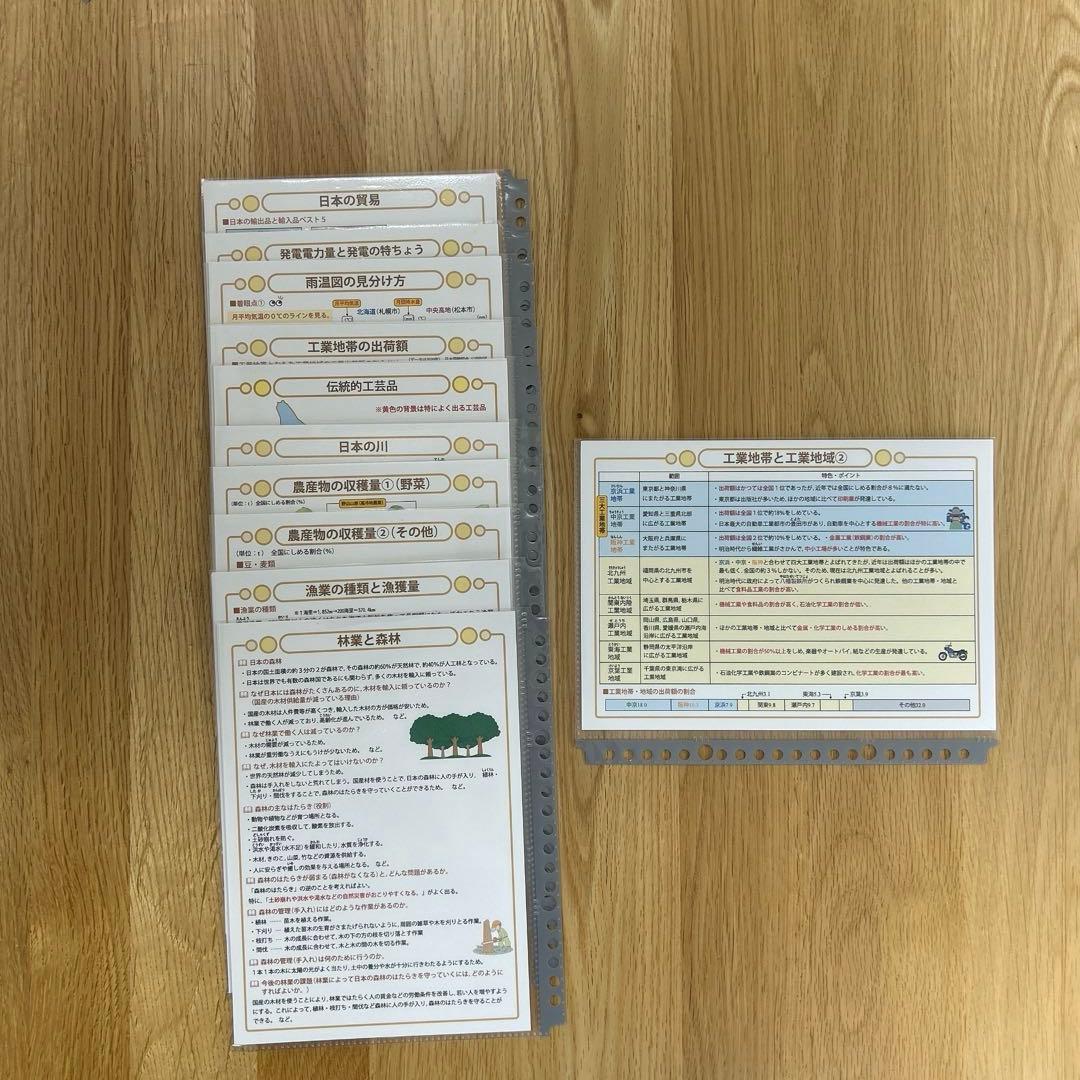 日本の貿易
■日本の輸出品と輸入品ベスト5
発電電力量と発電の特ちょう
雨温図の見分け方
■着眼点①
月平均気温の0℃のラインを見る。
月平均気温
北海道(札幌市)
月別降水量
中央高地(松本市)
工業地帯の出荷額
伝統的工芸品
※黄色の背景は特によく出る工芸品
日本の川
農産物の収穫量①(野菜)
(単位:t) 全国にしめる割合(%)
農産物の収穫量②(その他)
(単位:t) 全国にしめる割合(%)
■豆・麦類
漁業の種類と漁獲量
■漁業の種類
※1海里=1,852m→200海里=370.4km
林業と森林
日本の森林
・日本の国土面積の約3分の2が森林で、その森林の約60%が天然林で、約40%が人工林となっている。
・日本は世界でも有数の森林国であるにも関わらず、多くの木材を輸入に頼っている。
なぜ日本には森林がたくさんあるのに、木材を輸入に頼っているのか?
(国産の木材供給量が減っている理由)
・国産の木材は人件費等が高くつき、輸入した木材の方が価格が安いため。
・林業で働く人が減っており、高齢化が進んでいるため。 など。
なぜ林業で働く人は減っているのか?
・木材の需要が減っているため。
・林業が重労働なうえにもうけが少ないため。 など。
なぜ、木材を輸入にたよってはいけないのか?
・世界の天然林が減少してしまうため。
・森林は手入れをしないと荒れてしまう。国産材を使うことで、日本の森林に人の手が入り、植林・
下刈り・間伐をすることで、森林のはたらきを守っていくことができるため。 など。
森林の主なはたらき(役割)
・動物や植物などが育つ場所となる。
・二酸化炭素を吸収して、酸素を放出する。
・土砂崩れを防ぐ。
・洪水や渇水(水不足)を緩和したり、水質を浄化する。
・木材、きのこ、山菜、竹などの資源を供給する。
・人に安らぎや癒しの効果を与える場所となる。 など。
森林のはたらきが弱まる(森林がなくなる)と、どんな問題があるか。
「森林のはたらき」の逆のことを考えればよい。
特に、「土砂崩れや洪水や渇水などの自然災害がおこりやすくなる。」がよく出る。
森林の管理(手入れ)にはどのような作業があるのか。
・植林 …… 苗木を植える作業。
・下刈り … 植えた苗木の生育がさまたげられないように、周囲の雑草や木を刈りとる作業。
・枝打ち … 木の成長に合わせて、木の下の方の枝を切り落とす作業
・間伐 …… 木の成長に合わせて、木と木の間の木を切る作業。
森林の管理(手入れ)は何のために行うのか。
1本1本の木に太陽の光がよく当たり、土中の養分や水が十分に行きわたるようにするため。
今後の林業の課題(林業によって日本の森林のはたらきを守っていくには、どのように
すればよいか。)
国産の木材を使うことにより、林業ではたらく人の賃金などの労働条件を改善し、若い人を増やすよう
にする。これによって、植林・枝打ち・間伐など森林に人の手が入り、森林のはたらきを守ることが
できる。 など。
工業地帯と工業地域②
範囲
特色・ポイント
三大工業地帯
京浜工業
地帯
東京都と神奈川県
にまたがる工業地帯
・出荷額はかつては全国1位であったが、近年では全国にしめる割合が8%に満たない。
・東京都は出版社が多いため、ほかの地域に比べて印刷業が発達している。
中京工業
地帯
愛知県と三重県北部
に広がる工業地帯
・出荷額は全国1位で約18%をしめている。
・日本最大の自動車工業都市の豊田市があり、自動車を中心とする機械工業の割合が特に高い。
阪神工業
地帯
大阪府と兵庫県に
またがる工業地帯
・出荷額は全国2位で約10%をしめている。 ・金属工業(鉄鋼業)の割合が高い。
・明治時代から繊維工業がさかんで、中小工場が多いことが特色である。
北九州
工業地域
福岡県の北九州市を
中心とする工業地域
・京浜・中京・阪神と合わせて四大工業地帯とよばれてきたが、近年は出荷額がほかの工業地帯の中で
最も低く、全国の約3%しかない。そのため、現在は北九州工業地域とよばれることが多い。
・明治時代に政府によって八幡製鉄所がつくられ鉄鋼業を中心に発達した。他の工業地帯・地域と
比べて食料品工業の割合が高い。
関東内陸
工業地域
埼玉県、群馬県、栃木県に
広がる工業地域
・機械工業や食料品の割合が高く、石油化学工業の割合が低い。
瀬戸内
工業地域
岡山県、広島県、山口県、
香川県、愛媛県の瀬戸内海
沿岸に広がる工業地域
・ほかの工業地帯・地域と比べて金属・化学工業のしめる割合が高い。
東海工業
地域
静岡県の太平洋沿岸
に広がる工業地域
・機械工業の割合が50%以上をしめ、楽器やオートバイ、紙などの生産が発達している。
京葉工業
地域
千葉県の東京湾に広がる
工業地域
・石油化学工業や鉄鋼業のコンビナートが多く建設され、化学工業の割合が最も高い。
■工業地帯・地域の出荷額の割合
北九州3.1
東海5.3
京葉3.9
中京18.0
阪神10.3
京浜7.9
関東9.8
瀬戸内9.7
その他32.0